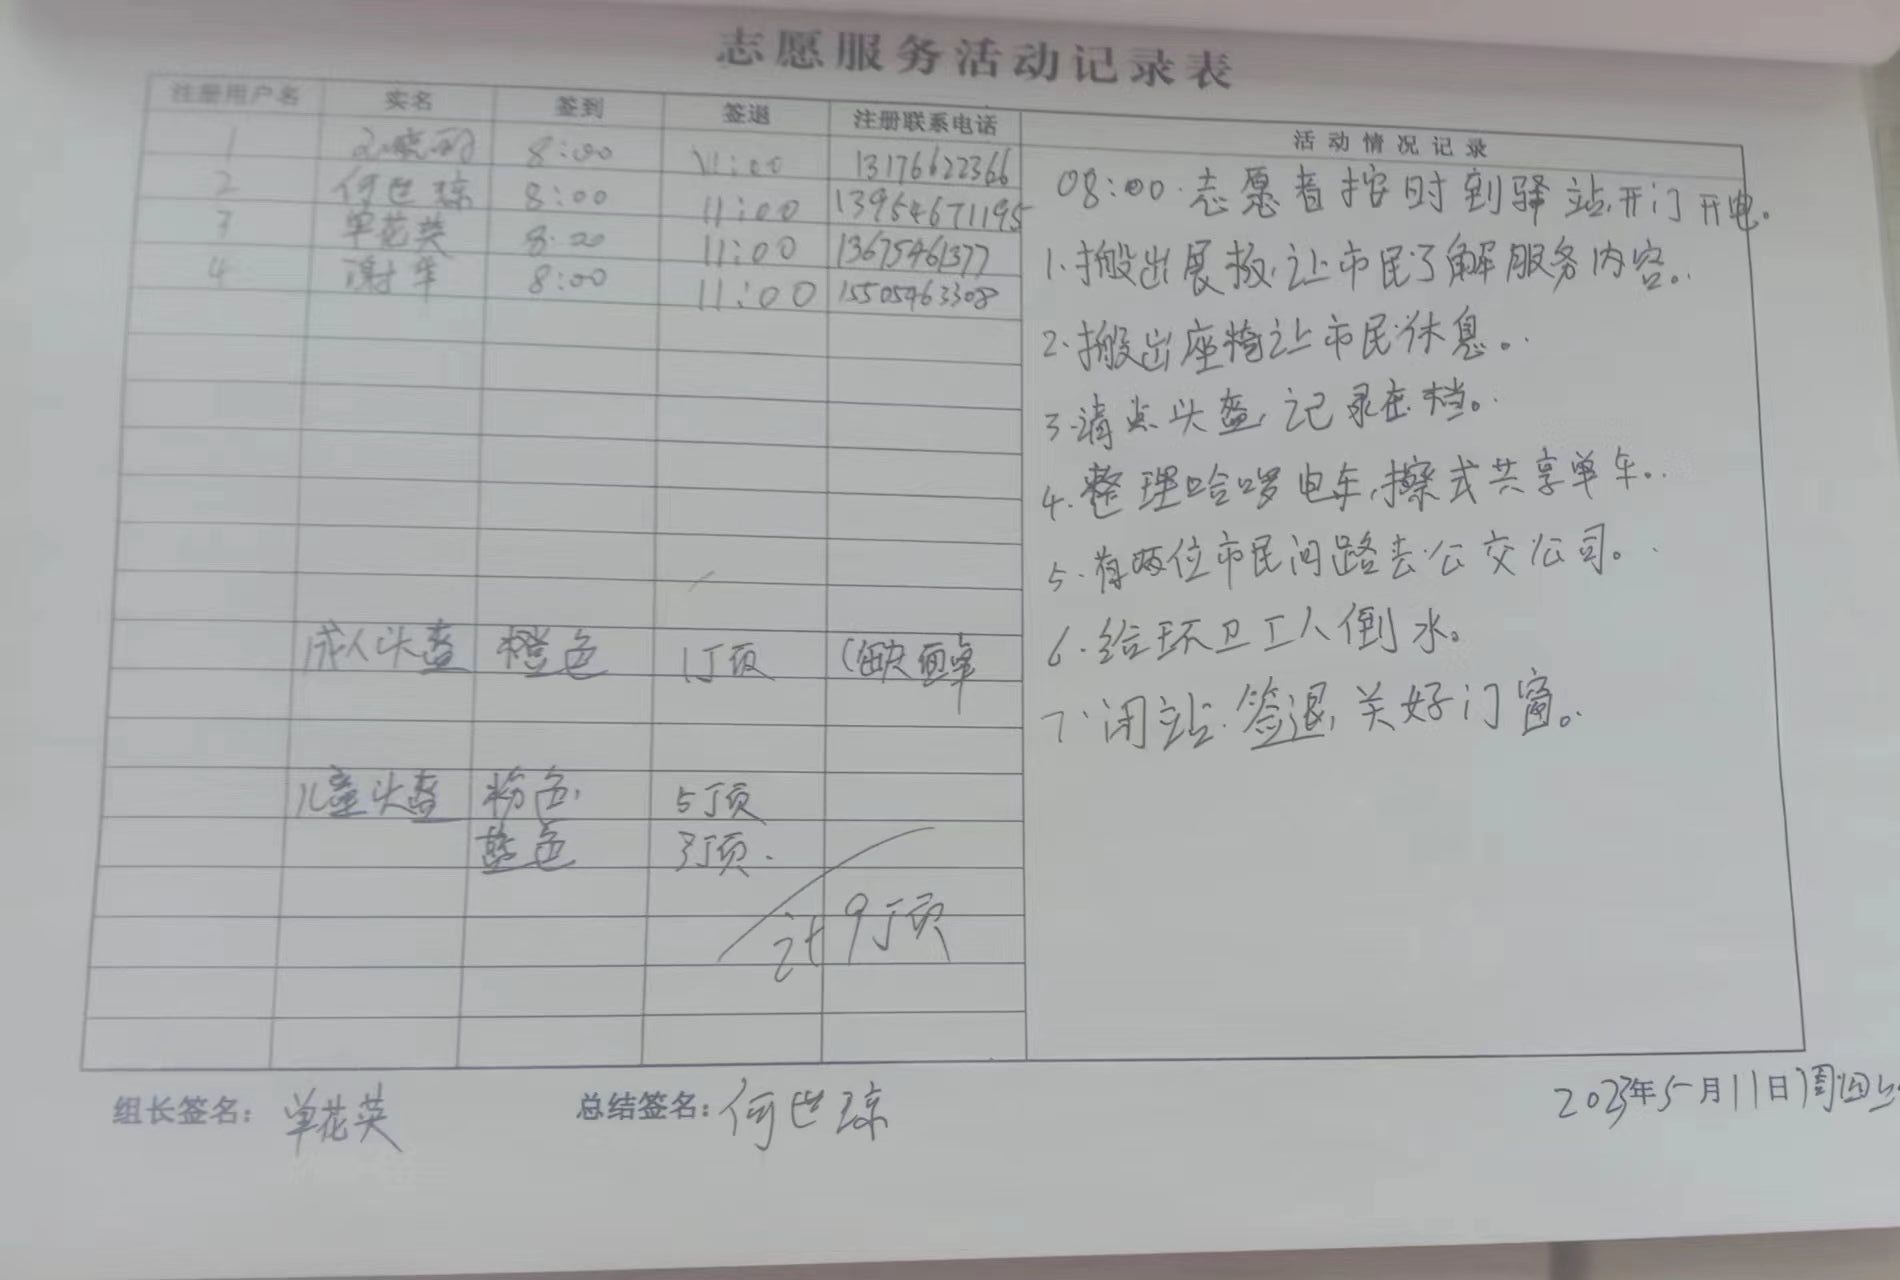 志愿服务活动记录表
注册用户名 实名 签到 签退 注册联系电话 活动情况记录
1 8:00 11:00 13176622366
2 何世琼 8:00 11:00 13954671195
3 单花英 8:20 11:00 13675461377
4 谢军 8:00 11:00 15505463308
成人头盔 橙色 1顶 (缺面罩
儿童头盔 粉色, 5顶
蓝色 3顶.
计9顶
08:00.志愿者按时到驿站,开门开电。
1.搬出展板,让市民了解服务内容。
2.搬出座椅让市民休息。
3.清点头盔,记录在档。
4.整理哈啰电车,擦式共享单车。
5.有两位市民问路去公交公司。
6.给环卫工人倒水。
7.闭站.签退,关好门窗。
组长签名: 单花英 总结签名: 何世琼 2023年5月11日周四上